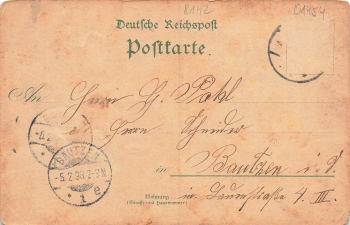 8142
01454
Deutsche Reichspost
Postkarte.
An Herrn H. Pohl
Herrn Schneider
in Bautzen i. S.
Wohnung
(Straße und Hausnummer)
in Taunstraße 4 III.
BAUTZEN
-5.2.98.2-3N
1 e